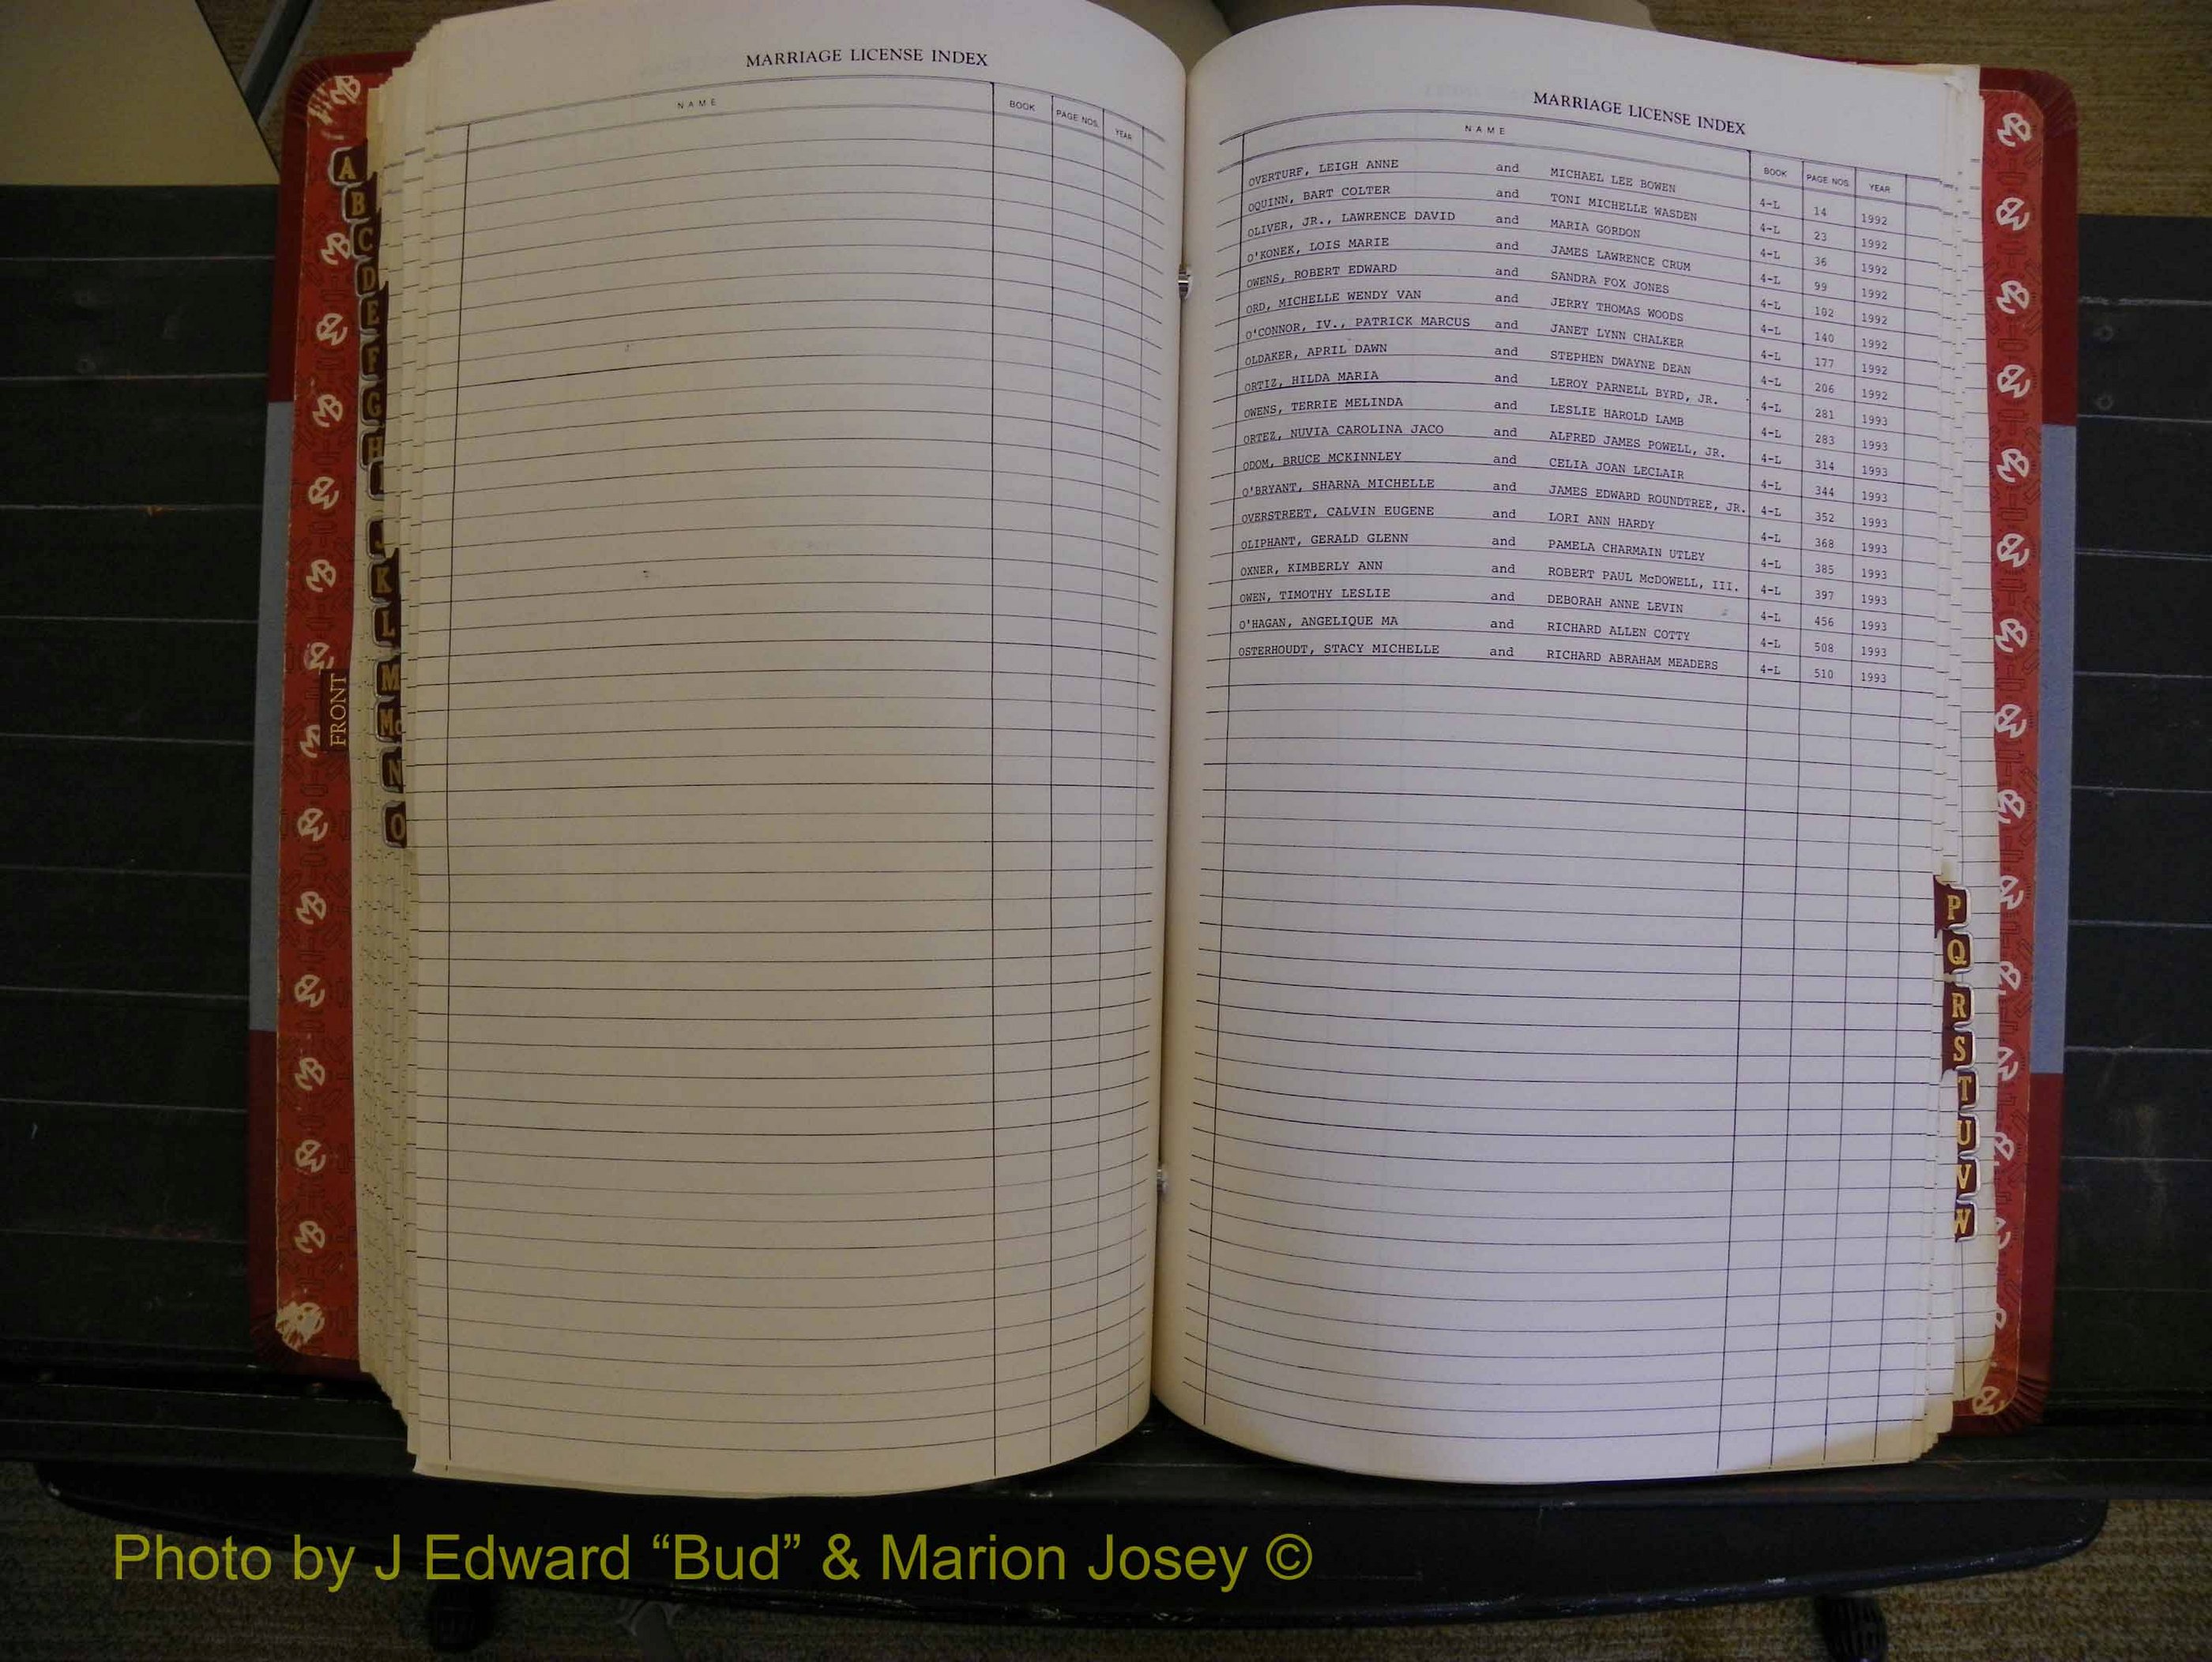 MARRIAGE LICENSE INDEX
NAME BOOK PAGE NOS. YEAR
A
B
C
D
E
F
G
H
I
J
K
L
M
Mc
N
O
FRONT
MARRIAGE LICENSE INDEX
NAME BOOK PAGE NOS. YEAR
OVERTURF, LEIGH ANNE and MICHAEL LEE BOWEN 4-L 14 1992
OQUINN, BART COLTER and TONI MICHELLE WASDEN 4-L 23 1992
OLIVER, JR., LAWRENCE DAVID and MARIA GORDON 4-L 36 1992
O'KONEK, LOIS MARIE and JAMES LAWRENCE CRUM 4-L 99 1992
OWENS, ROBERT EDWARD and SANDRA FOX JONES 4-L 102 1992
ORD, MICHELLE WENDY VAN and JERRY THOMAS WOODS 4-L 140 1992
O'CONNOR, IV., PATRICK MARCUS and JANET LYNN CHALKER 4-L 177 1992
OLDAKER, APRIL DAWN and STEPHEN DWAYNE DEAN 4-L 206 1992
ORTIZ, HILDA MARIA and LEROY PARNELL BYRD, JR. 4-L 281 1993
OWENS, TERRIE MELINDA and LESLIE HAROLD LAMB 4-L 283 1993
ORTEZ, NUVIA CAROLINA JACO and ALFRED JAMES POWELL, JR. 4-L 314 1993
ODOM, BRUCE MCKINNLEY and CELIA JOAN LECLAIR 4-L 344 1993
O'BRYANT, SHARNA MICHELLE and JAMES EDWARD ROUNDTREE, JR. 4-L 352 1993
OVERSTREET, CALVIN EUGENE and LORI ANN HARDY 4-L 368 1993
OLIPHANT, GERALD GLENN and PAMELA CHARMAIN UTLEY 4-L 385 1993
OXNER, KIMBERLY ANN and ROBERT PAUL McDOWELL, III. 4-L 397 1993
OWEN, TIMOTHY LESLIE and DEBORAH ANNE LEVIN 4-L 456 1993
O'HAGAN, ANGELIQUE MA and RICHARD ALLEN COTTY 4-L 508 1993
OSTERHOUDT, STACY MICHELLE and RICHARD ABRAHAM MEADERS 4-L 510 1993
P
Q
R
S
T
U
V
W
Photo by J Edward “Bud” & Marion Josey ©